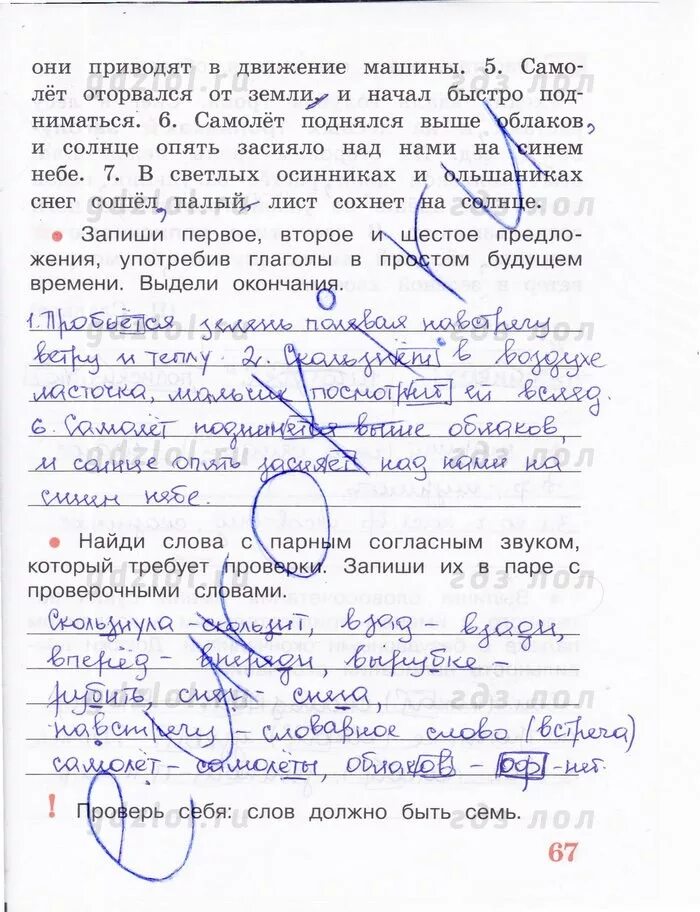 они приводят в движение машины. 5. Само-
лёт оторвался от земли, и начал быстро под-
ниматься. 6. Самолёт поднялся выше облаков,
и солнце опять засияло над нами на синем
небе. 7. В светлых осинниках и ольшаниках
снег сошёл, палый, лист сохнет на солнце.
• Запиши первое, второе и шестое предло-
жения, употребив глаголы в простом будущем
времени. Выдели окончания.
1. Пробьётся зелень полевая навстречу
ветру и теплу. 2. Скользнёт в воздухе
ласточка, мальчик посмотрит ей вслед.
6. Самолёт поднимется выше облаков,
и солнце опять засияет над нами на
синем небе.
• Найди слова с парным согласным звуком,
который требует проверки. Запиши их в паре с
проверочными словами.
Скользнула - скользит, взад - взади,
вперёд - впереди, вырубке -
рубить, снег - снега,
навстречу - словарное слово (встреча)
самолёт - самолёты, облаков - оф - нет.
! Проверь себя: слов должно быть семь.
67
gdzlol.ru
гдз лол